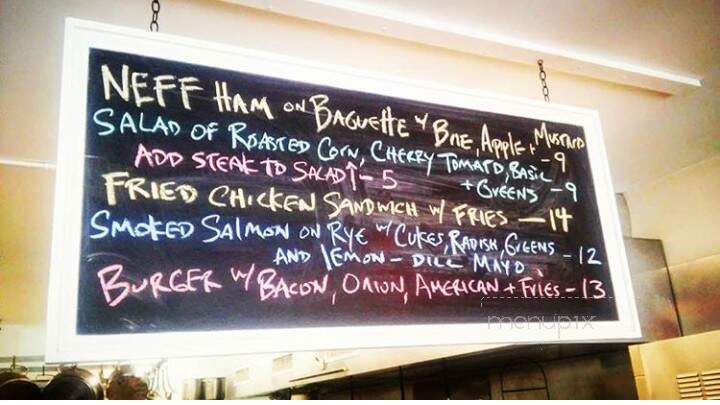 NEFF HAM ON BAGUETTE W/ BRIE, APPLE + MUSTARD - 9
SALAD OF ROASTED CORN, CHERRY TOMATO, BASIL + GREENS - 9
ADD STEAK TO SALAD ↑ - 5
FRIED CHICKEN SANDWICH W/ FRIES - 14
SMOKED SALMON ON RYE W/ CUKES, RADISH, GREENS - 12
AND LEMON - DILL MAYO
BURGER W/ BACON, ONION, AMERICAN + FRIES - 13
menupix